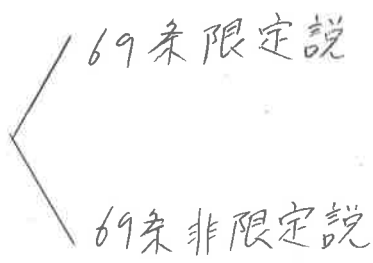 69条限定説
69条非限定説